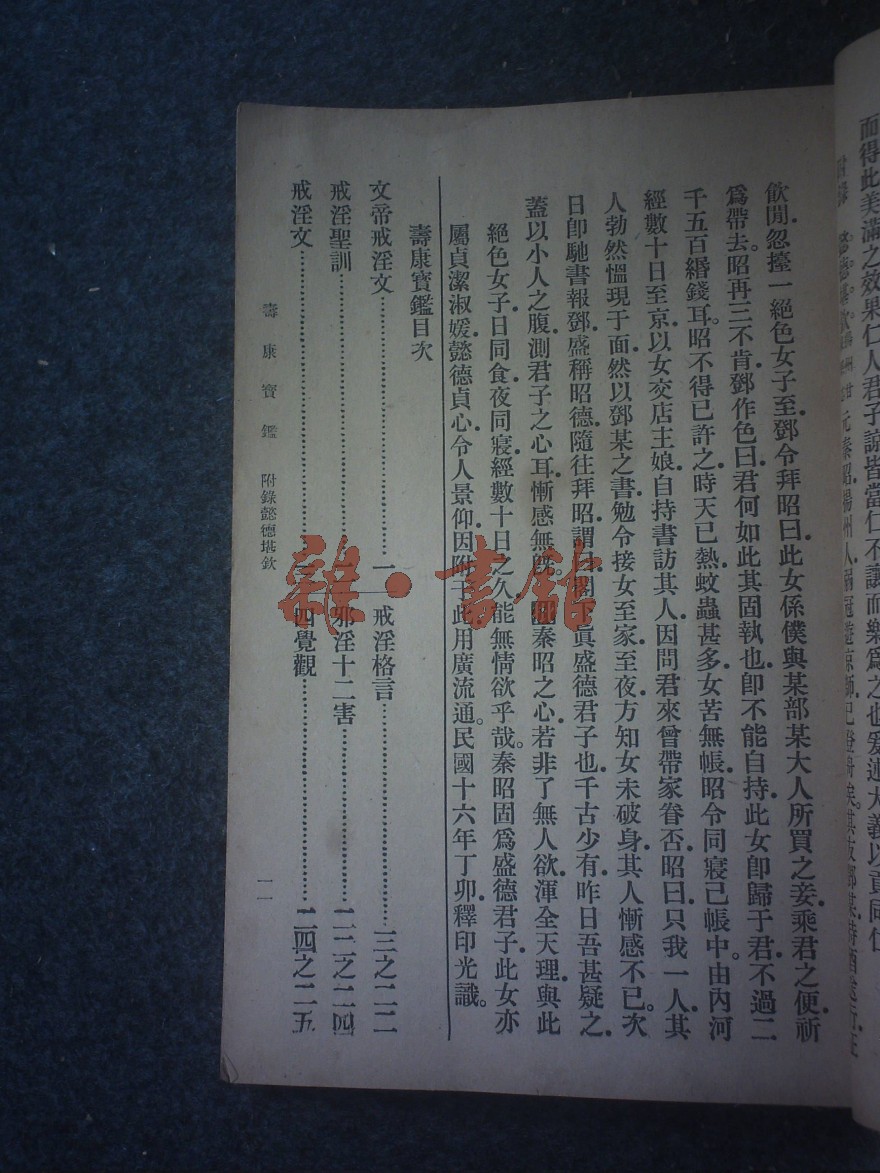 而得此美滿之效果仁人君子諒皆當仁不讓而樂爲之也爰述大義以貢同仁
飮間忽擡一絕色女子至鄧令拜昭曰此女係僕與某部某大人所買之妾乘君之便祈
爲帶去。昭再三不肯鄧作色曰君何如此其固執也卽不能自持此女卽歸于君不過二
千五百緡錢耳。昭不得已許之時天已熱蚊蟲甚多女苦無帳昭令同寢己帳中。由內河
經數十日至京以女交店主娘自持書訪其人因問君來曾帶家眷否昭曰只我一人其
人勃然慍現于面然以鄧某之書勉令接女至家至夜方知女未破身其人慚感不已。次
日卽馳書報鄧盛稱昭德隨往拜昭謂曰閣下眞盛德君子也千古少有昨日吾甚疑之
蓋以小人之腹測君子之心耳慚感無旣。秦昭之心若非了無人欲渾全天理與此
絕色女子日同食夜同寢經數十日之久能無情欲乎哉。秦昭固爲盛德君子此女亦
屬貞潔淑媛懿德貞心令人景仰因附于此用廣流通。民國十六年丁卯釋印光識。
壽康寶鑑目次
文帝戒淫文……一
戒淫格言……三之二二
戒淫聖訓……
邪淫十二害……二二之二四
戒淫文……
四覺觀……二四之二五
壽康寶鑑 附錄懿德堪欽 一一
雜·書館